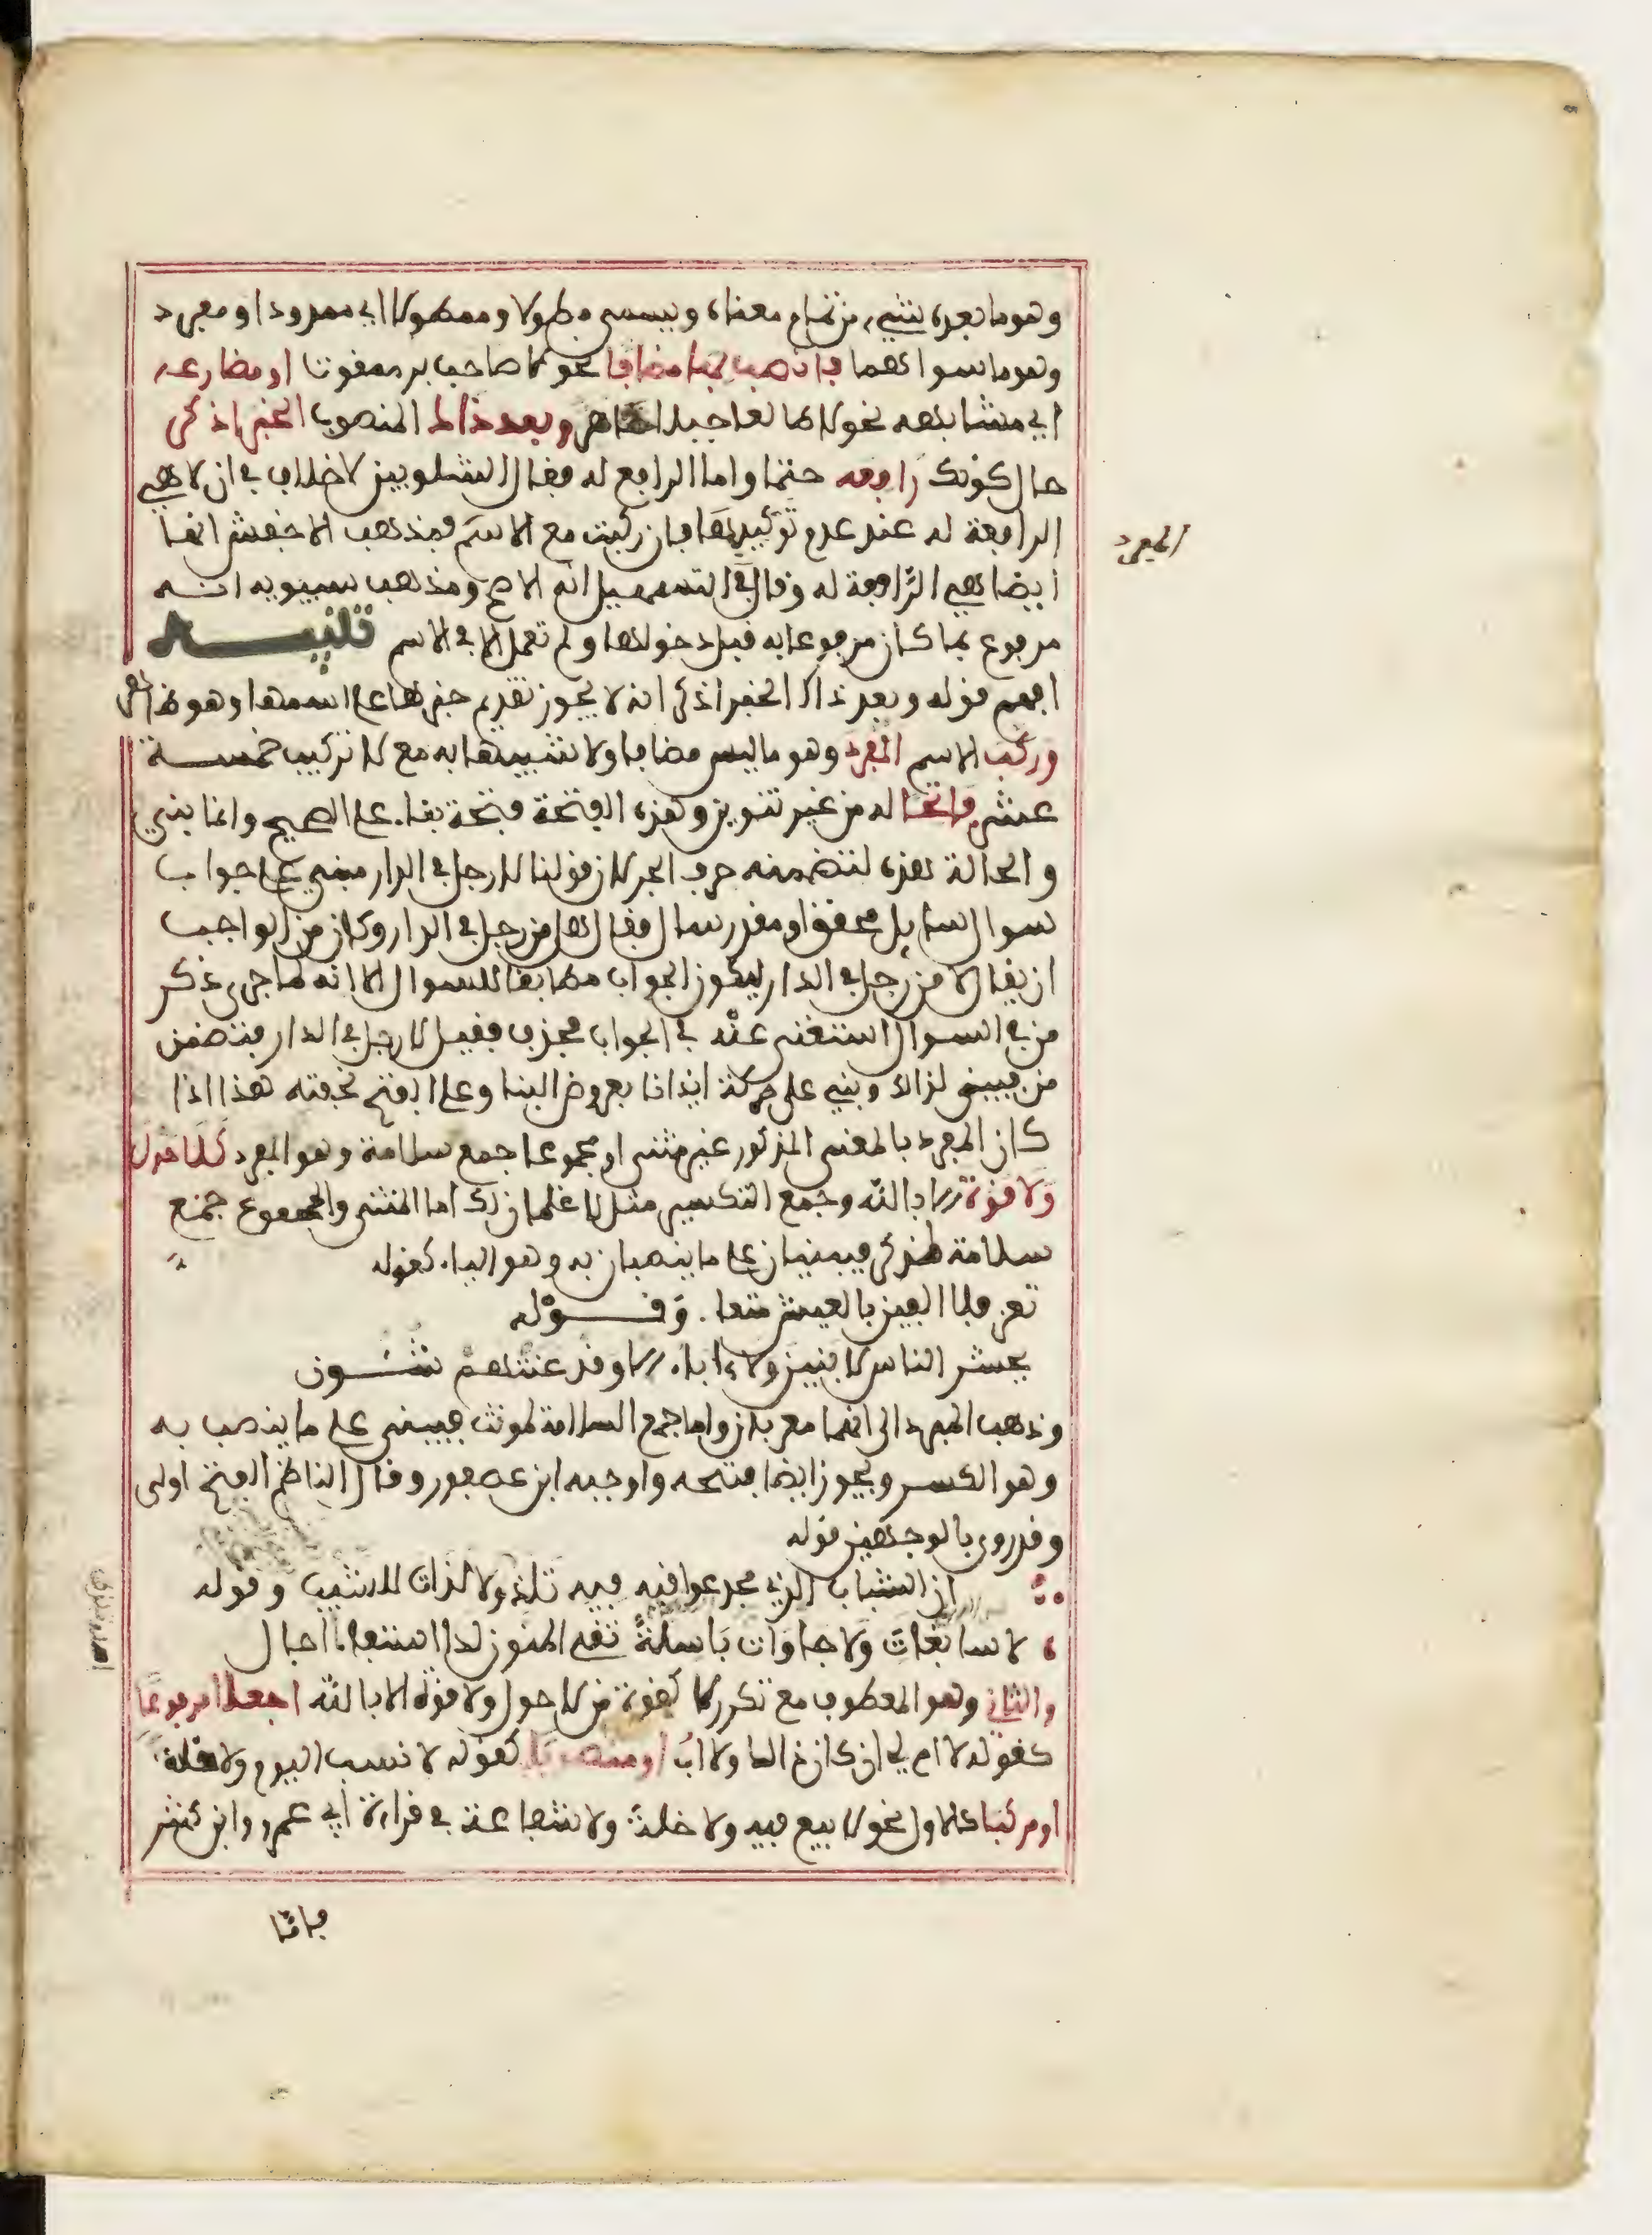 وهو ما بعده شيء من تمام معناه ويسمى مطولا وممطولا اي ممدودا ومفرد
وهو ما سواهما فانصب بها مضافا نحو لا صاحب بر ممقوت او مضارعه
اي مشابهه نحو لا طالعا جبلا ظاهر وبعد ذاك المنصوب الخبر اذكر
حال كونك رافعه حتما واما الرافع له فقال الشلوبين لا خلاف في ان لا هي
الرافعة له عند عدم تركيبها فان ركبت مع الاسم فمذهب الاخفش انها
ايضا هي الرافعة له وقال في التسهيل انه الاصح ومذهب سيبويه انه
مرفوع بما كان مرفوعا به قبل دخولها ولم تعمل الا في الاسم تنبيه
افهم قوله وبعد ذاك الخبر اذكر انه لا يجوز تقديم خبرها على اسمها وهو ظاهر
وركب الاسم المفرد وهو ما ليس مضافا ولا شبيها به مع لا تركيب خمسة
عشر فاتحا له من غير تنوين وهذه الفتحة فتحة بناء على الصحيح وانما بني
والحالة هذه لتضمنه حرف الجر لان قولنا لا رجل في الدار مبني على جواب
سوال سايل محقق او مقدر سال فقال هل من رجل في الدار وكان من الواجب
ان يقال لا من رجل في الدار ليكون الجواب مطابقا للسوال الا انه لما جرى ذكر
من في السوال استغنى عنه في الجواب فحذف فقيل لا رجل في الدار فتضمن
من فبني لذلك وبني على حركة ايذانا بعروض البنا وعلى الفتح لخفته هذا اذا
كان المفرد بالمعنى المذكور غير مثنى او مجموعا جمع سلامة وهو المفرد كلا حول
ولا قوة الا بالله وجمع التكسير مثل لا غلمان لك اما المثنى والمجموع جمع
سلامة لمذكر فيبنيان على ما ينصبان به وهو الياء كقوله
تعز فلا الفين بالعيش متعا . وقوله
يحشر الناس لا بنين ولا ءاباء الا وقد عنتهم شئون
وذهب المبرد الى انهما معربان واما جمع السلامة لمونث فيبنى على ما ينصب به
وهو الكسر ويجوز ايضا فتحه واوجبه ابن عصفور وقال الناظم الفتح اولى
وقد روى بالوجهين قوله
ان الشباب الذي مجد عواقبه فيه تلذ ولا لذات للشيب وقوله
لا سابغات ولا جاوات باسلة تقي المنون لدا استيفاء اجال
والثاني وهو المعطوف مع تكرر لا كقوة من لا حول ولا قوة الا بالله اجعلا مرفوعا
كقوله لا ام لي ان كان ذالك ولا اب او منصوبا كقوله لا نسب اليوم ولا خلة
او مركبا كالاول نحو لا بيع فيه ولا خلة ولا شفاعة في قراءة ابي عمرو وابن كثير
فاما
المفرد